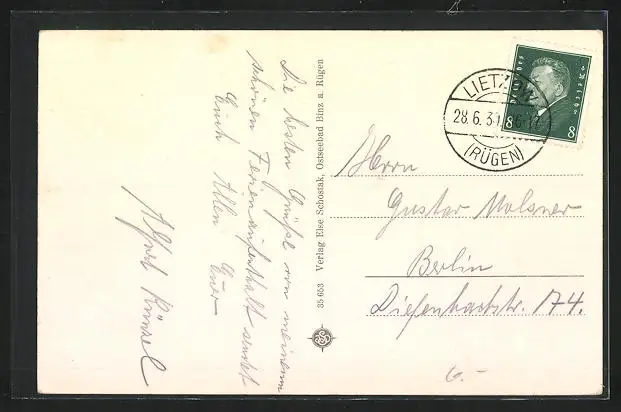 Die besten Grüße von meinem
schönen Ferienaufenthalt sendet
Euch Allen Euer
Alfred Künzel
35 653 Verlag Else Schostak, Ostseebad Binz a. Rügen
LIETZOW
28.6.30
(RÜGEN)
8 8
Herrn
Gustav Molsner
Berlin
Diefenbachstr. 174.
6.-